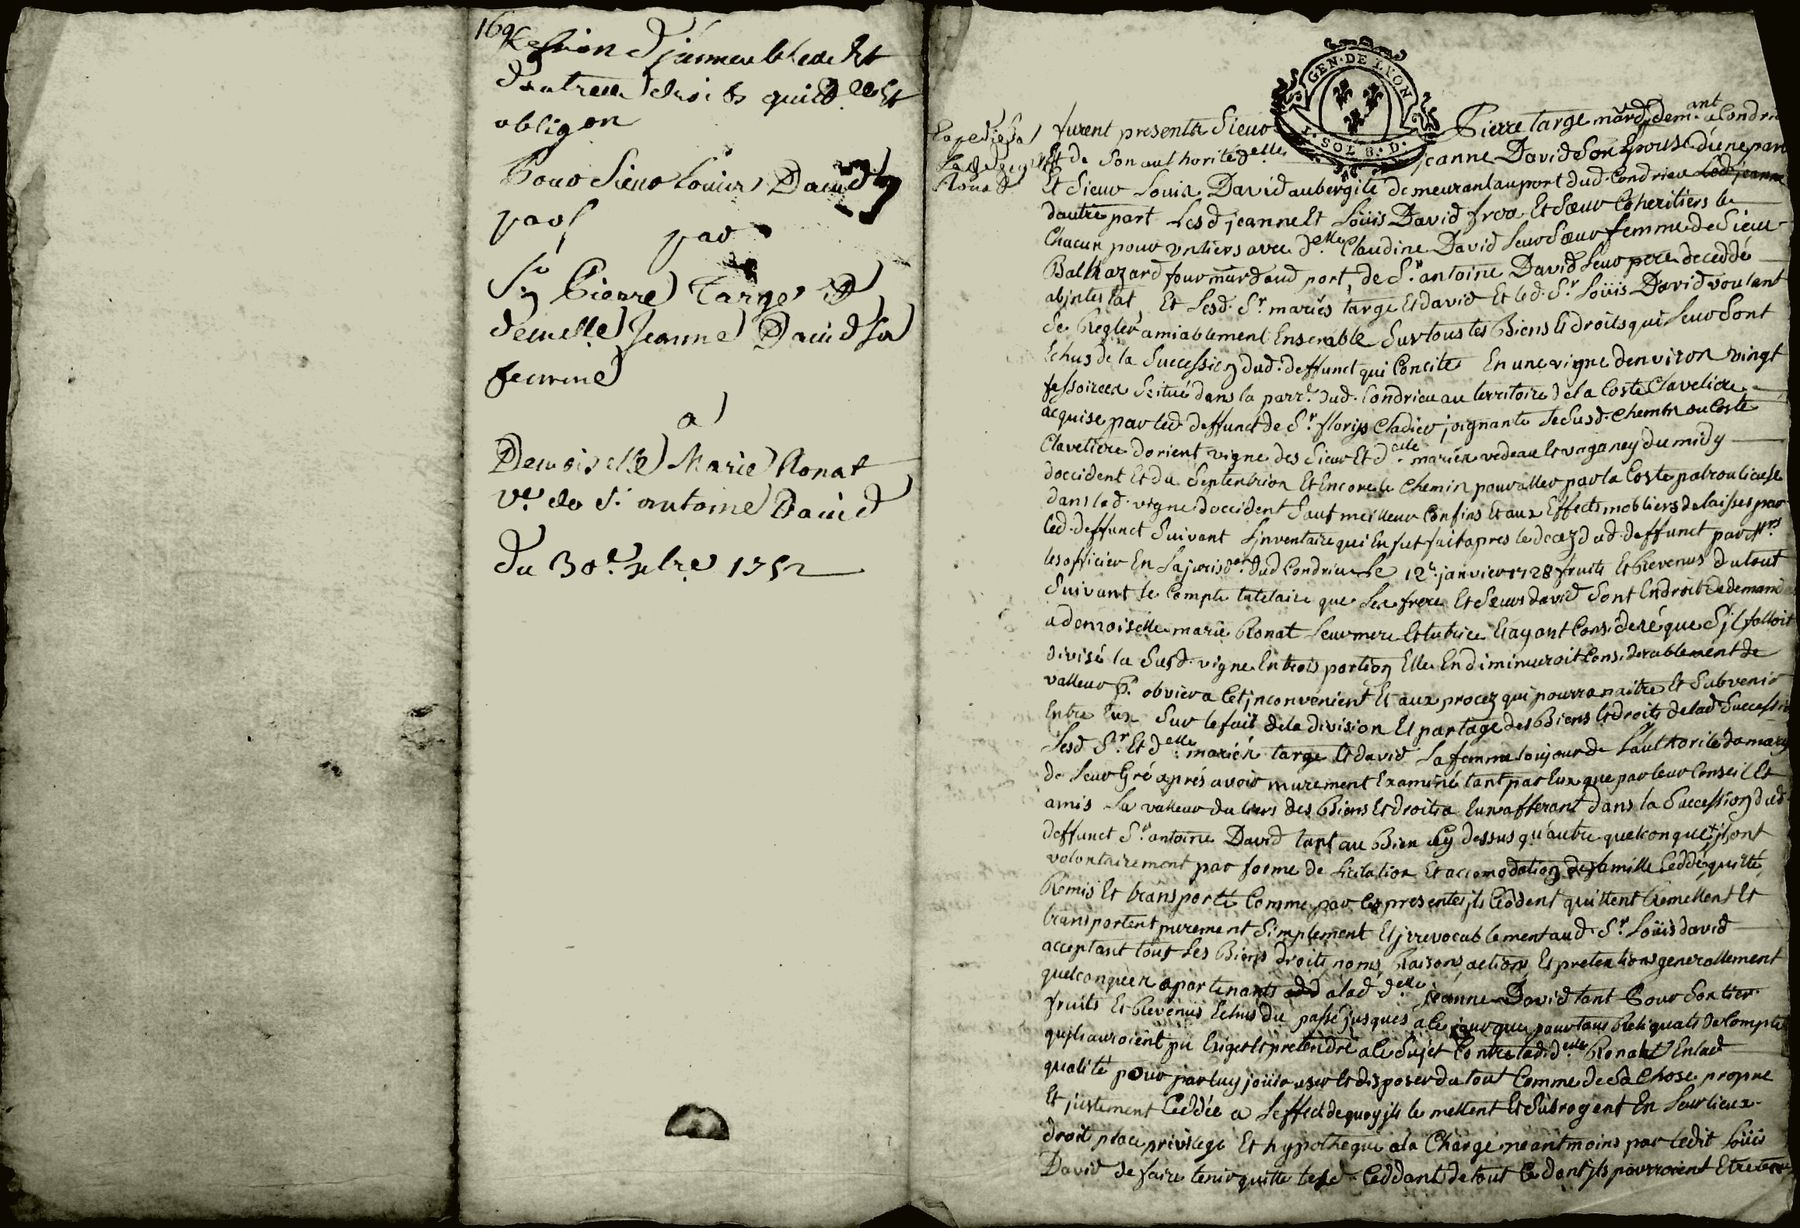 169
Cession d'immeuble et
d'autres droits quitt.ce et
obligon
Pour Sieur Louis David
par
Sr Pierre Targe et
demelle Jeanne David sa
femme
a
Demoiselle Marie Ronat
ve. de Sr. antoine David
Du 30e. xbre 1752
GEN. DE LYON
1. SOL 8. D.
Expedié
Ronat
furent presents Sieur Pierre targe mard. demant. a Condrieu
Et de Son authorité delle jeanne David Son Epouse d'une part
Et Sieur Loüis David aubergiste demeurant au port dud. Condrieu
dautre part Lesd jeanne Et Loüis David frere Et Sœur Coheritiers
Chacun pour un tiers avec delle Claudine David leur Sœur femme de Sieur
Balthazard four mard aud port, de Sr. antoine David leur pere deceddé
abjntestat, Et Lesd. Sr. mariés targe Et david Et led. Sr. Loüis David voulant
Se Regler amiablement Ensemble Sur tous les Biens Et droits qui leur Sont
Echus de la Succession dud. deffunct qui Concite En une vigne denviron vingt
fessoirees Scitué dans la parr. dud. Condrieu au territoire de la Coste Claveliere
acquise par led deffunct de Sr. floris Cladier joignante le Susd. Chemin ou Coste
Claveliere dorient vigne des Sieur Et delle mariés vedeau Et vaganey du midy
doccident Et du Septentrion Et Encore le Chemin pour aller par la Coste patroulieuse
dans lad. vigne doccident Sauf meilleur Confins Et aux Effects mobliers delaissés par
led. deffunct Suivant Linventaire qui En fut fait apres le decez dud. deffunct par Mrs
les officiers En la jurison. dud Condrieu Le 12e. janvier 1728 fruits Et Revenus du tout
Suivant le Compte tutelaire que Les frere Et Sœurs david Sont En droit de demander
a demoiselle marie Ronat leur mere Et tutrice Et ayant Consideré que S'il falloit
divisé la Susd. vigne En trois portion Elle En diminuroit Considerablement de
valleur pr. obvier a Cet jnconvenient Et aux procez qui pourra naitre Et Subvenir
Entre Eux Sur le fait de la division Et partage des Biens Et droits de lad Succession
Lesd. Sr. Et delle mariés targe Et david La femme toujour de L'authorité du mary
de leur Gré apres avoir murement Examiné tant par Eux que par leur Conseil Et
amis La valleur du tiers des Biens Et droits a Eux afferant dans la Succession dud
deffunct Sr. antoine David tant au Bien Cy dessus qu'autre quelconque jls ont
volontairement par forme de licitation Et accomodation de famille Ceddé, quitté,
Remis Et transporté Comme par Ces presentes jls Ceddent quittent Remettent Et
transportent purement Simplement Et jrrevocablement aud. Sr. Loüis david
acceptant tous Les Biens droits noms, Raisons, actions, Et pretentions generallement
quelconques apartenants a lad. delle jeanne David tant Pour Son tier
fruits Et Revenus Echus du passé jusques a Ce jour que pour tous Reliquats de Compte
quils auroient pu Exiger Et pretendre a Ce Sujet Contre lad. delle Ronat En lad
qualité pour par luy joüir user Et disposer du tout Comme de Sa Chose propre
Et justement Ceddée a Leffect de quoy jls le mettent Et Subrogent En leur lieux
droit place privilege Et hypotheque a la Charge neantmoins par ledit Loüis
David de faire tenir quitte lesd. Ceddant de tout Ce dont jls pourroient Etre